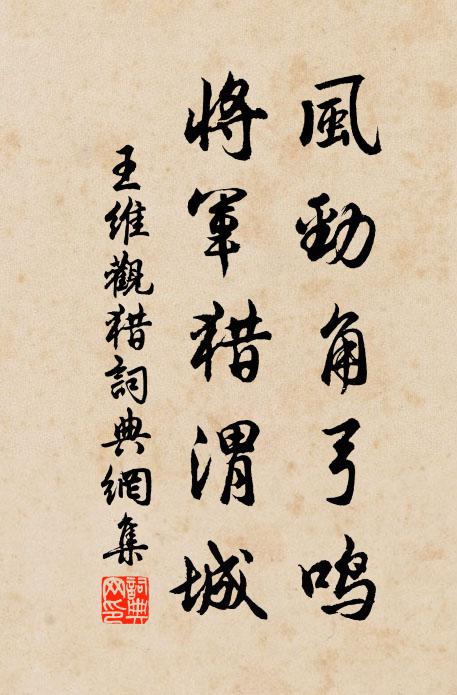 風勁角弓鸣
將軍猎渭城
王維觀猎詞典網集